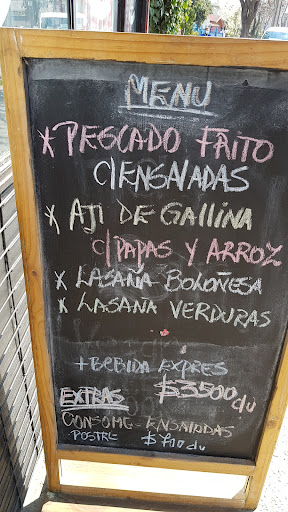 MENU
* PESCADO FRITO
C/ENSALADAS
* AJI DE GALLINA
C/PAPAS Y ARROZ
* LASAÑA BOLOÑESA
* LASAÑA VERDURAS
+ BEBIDA EXPRES
EXTRAS $3500 c/u
CONSOME - ENSALADAS
POSTRE $700 c/u